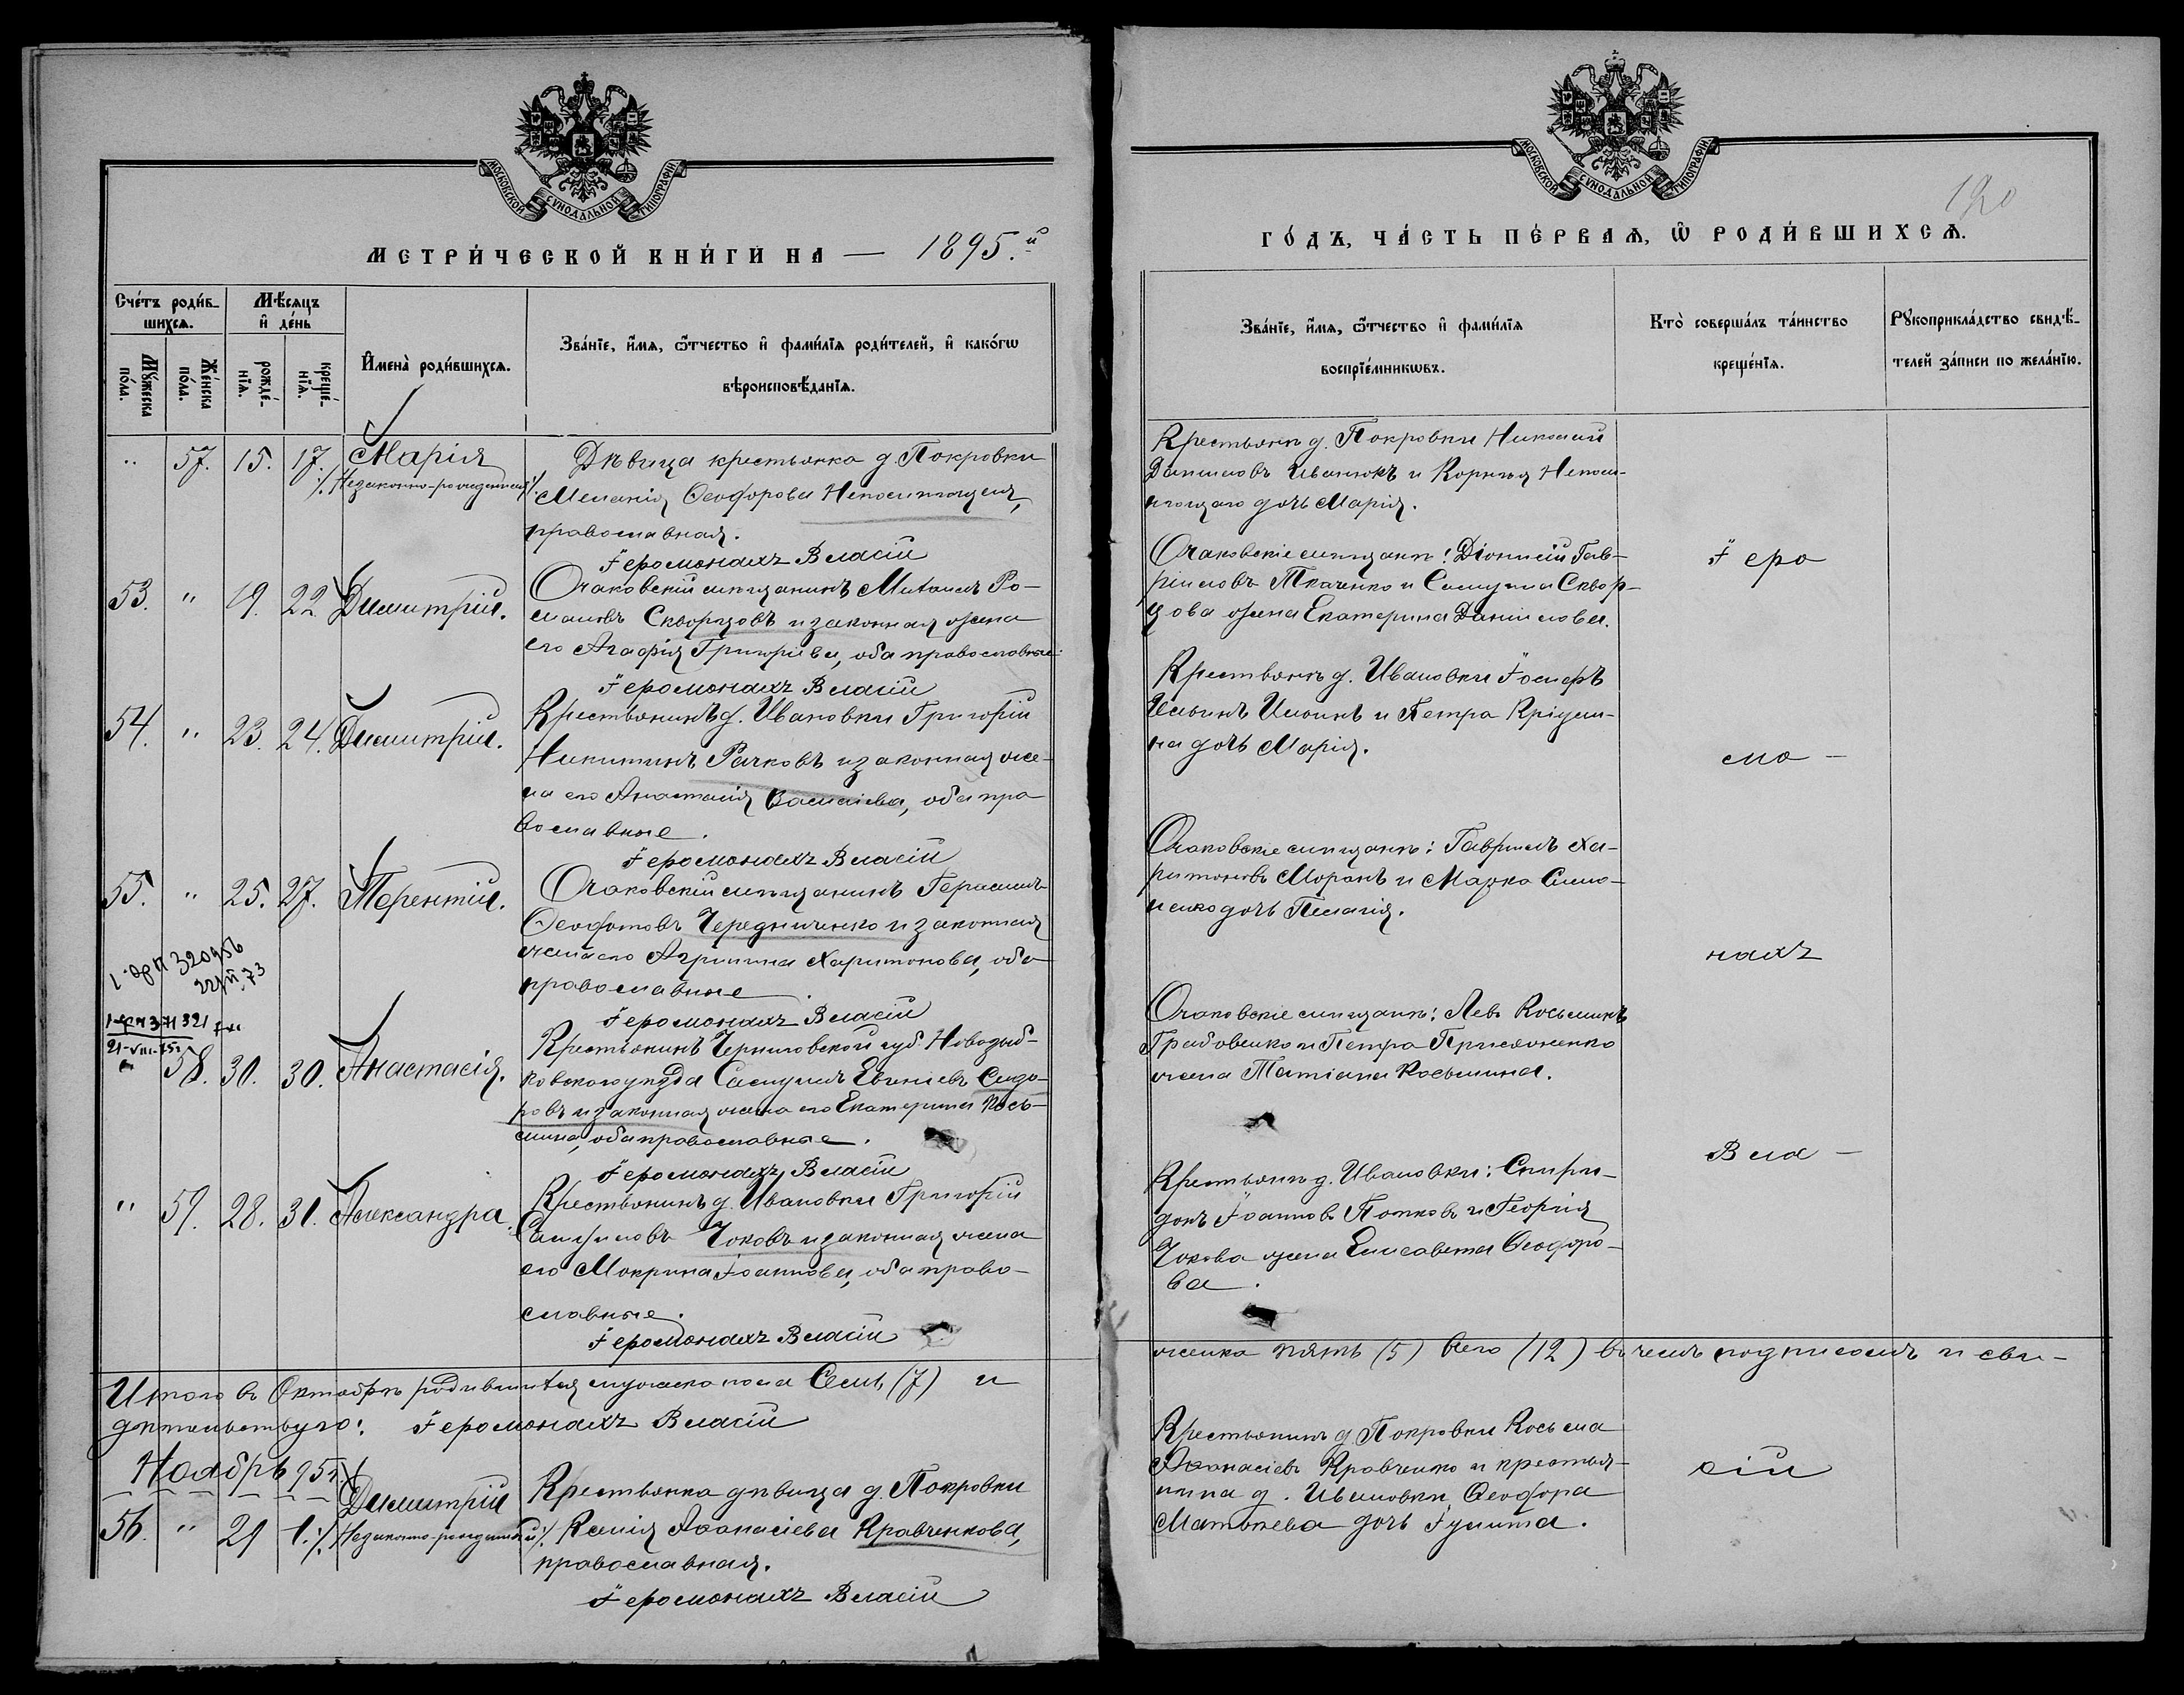 МОСКОВСКОЙ СУНОДАЛЬНОЙ ТИПОГРАФІИ
МЕТРИ́ЧЕСКОЙ КНИ́ГИ НА — 1895.й
Сче́тъ роди́в-
шихсѧ.
Мѣ́сѧцъ
и҆ де́нь
Мꙋ́жеска
по́ла.
Же́нска
по́ла.
рожде́-
нїѧ.
креще́-
нїѧ.
И҆мена̀ роди́вшихсѧ.
Зва́нїе, и҆́мѧ, ѻ҆́тчество и҆ фами́лїѧ роди́телей, и҆ како́гѡ
вѣроисповѣ́данїѧ.
„ 57. 15. 17. Марія
·/. Незаконно-рожденная ·/.
Дѣвица крестьянка д. Покровки
Меланія Ѳеодорова Непомнющая,
православная.
Іеромонахъ Власій
53. „ 19. 22 Димитрій.
Очаковскій мѣщанинъ Михаилъ Ро-
мановъ Скворцовъ и законная жена
его Агафія Григорьева, оба православные.
Іеромонахъ Власій
54. „ 23. 24. Димитрій.
Крестьянинъ д. Ивановки Григорій
Никитинъ Рачковъ и законная же-
на его Анастасія Васильева, оба пра-
вославные.
Іеромонахъ Власій
55. „ 25. 27. Терентій.
Очаковскій мѣщанинъ Герасимъ
Ѳеофотовъ Чередниченко и законная
жена его Агрипина Харитонова, оба
православные.
Іеромонахъ Власій
320956
73
321
21-VIII-75г
58. 30. 30. Анастасія.
Крестьянинъ Черниговской губ. Новозыб-
ковского уѣзда Самуилъ Евгеніевъ Сидо-
ровъ и законная жена его Екатерина Кось-
мина, оба православные.
Іеромонахъ Власій
„ 59. 28. 31. Александра.
Крестьянинъ д. Ивановки Григорій
Самуиловъ Чоковъ и законная жена
его Мокрина Іоаннова, оба право-
славные.
Іеромонахъ Власій
Итого въ Октябрѣ родившихся мужеска пола Семь (7) и
дѣтельствую: Іеромонахъ Власій
Ноябрь 95г.
56. „ 29 1. Димитрій
·/. Незаконно-рожденный ·/.
Крестьянка дѣвица д. Покровки
Ксенія Аѳанасіева Кравченкова,
православная.
Іеромонахъ Власій
МОСКОВСКОЙ СУНОДАЛЬНОЙ ТИПОГРАФІИ
190
ГО́ДЪ, ЧА́СТЬ ПЕ́РВАѦ, Ѡ҆ РОДИ́ВШИХСѦ.
Зва́нїе, и҆́мѧ, ѻ҆́тчество и҆ фами́лїѧ
воспрїе́мникѡвъ.
Кто̀ соверша́лъ та́инство
креще́нїѧ.
Рꙋкоприкла́дство свидѣ́-
телей за́писи по жела́нїю.
Крестьяне д. Покровки Николай
Даниловъ Иванюкъ и Корнѣя Непом-
нющаго дочь Марія.
Очаковскіе мѣщане: Діонисій Гав-
ріиловъ Ткаченко и Самуила Сквор-
цова жена Екатерина Даніилова.
Іеро
Крестьяне д. Ивановки Іосифъ
Ильинъ Илюинъ и Петра
на дочь Марія.
мо-
Очаковскіе мѣщане: Гавріилъ Ха-
ритоновъ Моранъ и Марка Симо-
ненко дочь Пелагія.
нахъ
Очаковскіе мѣщане: Левъ Косьминъ
Грабовенко и Петра Присяженко
жена Татіана Косьмина.
Вла-
Крестьяне д. Ивановки: Спири-
донъ Іоанновъ Попковъ и Георгія
Чокова жена Елисавета Ѳеодоро-
ва.
женска пять (5) Всего (12) въ чемъ подписомъ и сви-
Крестьянинъ д. Покровки Косьма
Аѳанасіевъ Кравченко и крестья-
нина д. Ивановки Ѳеодора
Матвѣева дочь Іулита.
сій